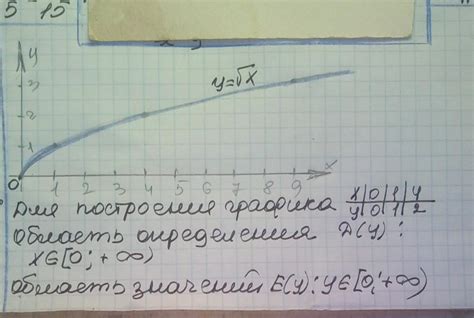 5 15
y
3
y=√x
2
1
0 1 2 3 4 5 6 7 8 9 x
Для построения графика x|0|1|4
y|0|1|2
область определения D(y):
x∈[0;+∞)
область значений E(y): y∈[0;+∞)